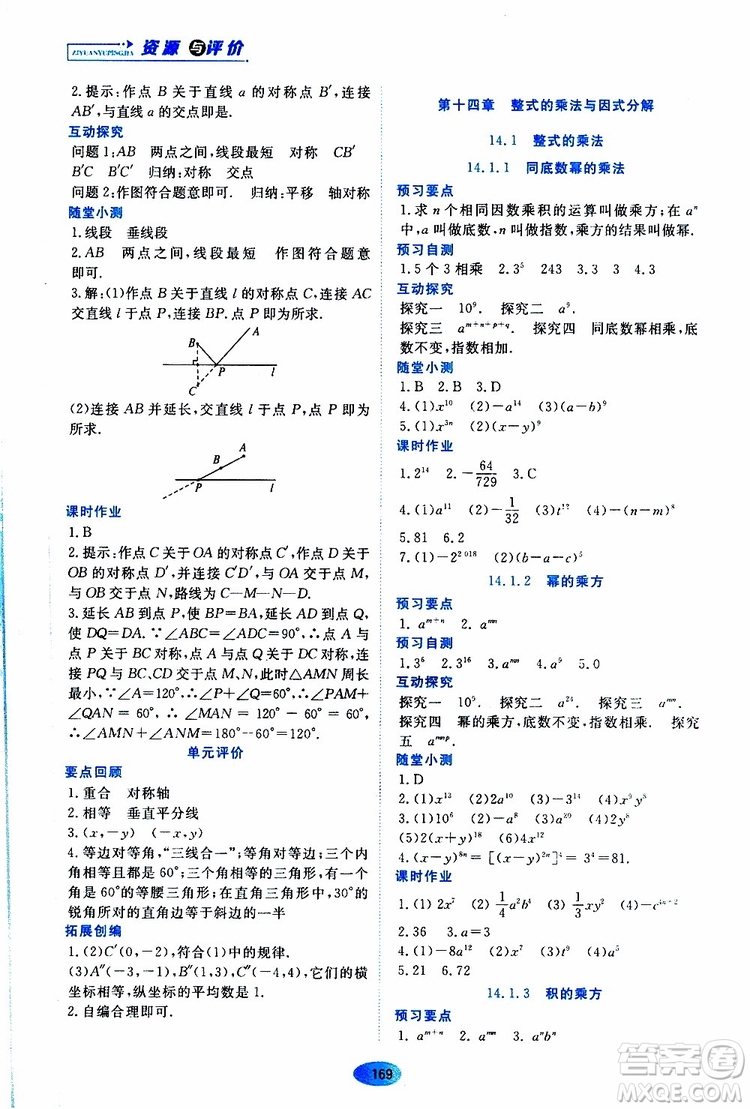 资源与评价
ZIYUANYUPINGJIA
2.提示:作点 B 关于直线 a 的对称点 B′,连接
AB′,与直线 a 的交点即是.
互动探究
问题 1:AB 两点之间,线段最短 对称 CB′
B′C B′C′ 归纳:对称 交点
问题 2:作图符合题意即可. 归纳:平移 轴对称
随堂小测
1.线段 垂线段
2.AB 两点之间,线段最短 作图符合题意
即可.
3.解:(1)作点 B 关于直线 l 的对称点 C,连接 AC
交直线 l 于点 P,连接 BP.点 P 即为所求.
A
B
P l
C
(2)连接 AB 并延长,交直线 l 于点 P,点 P 即为
所求.
A
B
P l
课时作业
1.B
2.提示:作点 C 关于 OA 的对称点 C′,点 D 关于
OB 的对称点 D′,连接 C′D′,与 OA 交于点 M,与
OB 交于点 N,路线为 C—M—N—D.
3.延长 AB 到点 P,使 BP=AB,延长 AD 到点 Q,
使 DQ=DA.∵∠ABC=∠ADC=90°,∴点 A 与
点 P 关于 BC 对称,点 A 与点 Q 关于 DC 对称,连接
PQ 与 BC、DC 分别交于点 M、N,此时△AMN 周长
最小,∵∠A=120°,∴∠P+∠Q=60°,∴∠PAM+
∠QAN = 60°,∴∠MAN = 120° - 60° = 60°,
∴∠AMN+∠ANM=180°-60°=120°.
单元评价
要点回顾
1.重合 对称轴
2.相等 垂直平分线
3.(x,-y) (-x,y)
4.等边对等角,“三线合一”;等角对等边,三个内
角都是60°的等腰三角形;三个角都相等的三角形,有
一个角是60°的等腰三角形;在直角三角形中,30°的
锐角所对的直角边等于斜边的一半
拓展创编
1.(2)C′(0,-2),符合(1)中的规律.
(3)A″(-3,-1),B″(-1,-5),它们的横
坐标相等,纵坐标的平均数是1.
2.自编合理即可.
第十四章 整式的乘法与因式分解
14.1 整式的乘法
14.1.1 同底数幂的乘法
预习要点
1.求 n 个相同因数乘积的运算叫做乘方;在 aⁿ
中,a 叫做底数,n 叫做指数,乘方的结果叫做幂.
预习自测
1.5 个 3 相乘 2.3⁵ 243 3.3 4.3
互动探究
探究一 10⁹. 探究二 a⁵.
探究三 a^{m+n+p+q}. 探究四 同底数幂相乘,底
数不变,指数相加.
随堂小测
1.B 2.B 3.D
4.(1)x¹⁰ (2)-a¹⁴ (3)(a-b)⁹
5.(1)x³ⁿ (2)(x-y)⁹
课时作业
1.2¹⁴ 2.-64/729 3.C
4.(1)a¹¹ (2)-1/32 (3)t¹² (4)-(n-m)⁸
5.81 6.2
7.(1)-2^{2 018} (2)(b-a-c)⁵
14.1.2 幂的乘方
预习要点
1.a^{m+n} 2.a^{mn}
预习自测
1.3⁶ 2.B 3.a^{mn} 4.a⁵ 5.0
互动探究
探究一 10⁹. 探究二 a²⁸. 探究三 a^{mn}.
探究四 幂的乘方,底数不变,指数相乘. 探究
五 a^{mnp}.
随堂小测
1.D
2.(1)10¹² (2)2a¹⁰ (3)-a⁴ (4)x¹⁰
3.(1)x¹² (2)-a⁸ (3)a²⁰ (4)x¹⁰
(5)2(x+y)¹⁸ (6)2a¹⁰
4.(x-y)⁸=[(x-y)²]⁴=3⁴=81.
课时作业
1.(1)2x⁷ (2)1/4a²b² (3)1/3xy² (4)-1
2.36 3.a=4
4.(1)-8a¹² (2)x¹⁰ (3)4a⁶ (4)a⁵
5.21 6.72
14.1.3 积的乘方
预习要点
1.a^{m+n} 2.a^{mn} 3.aⁿbⁿ
169
答案圈
MXQE.COM